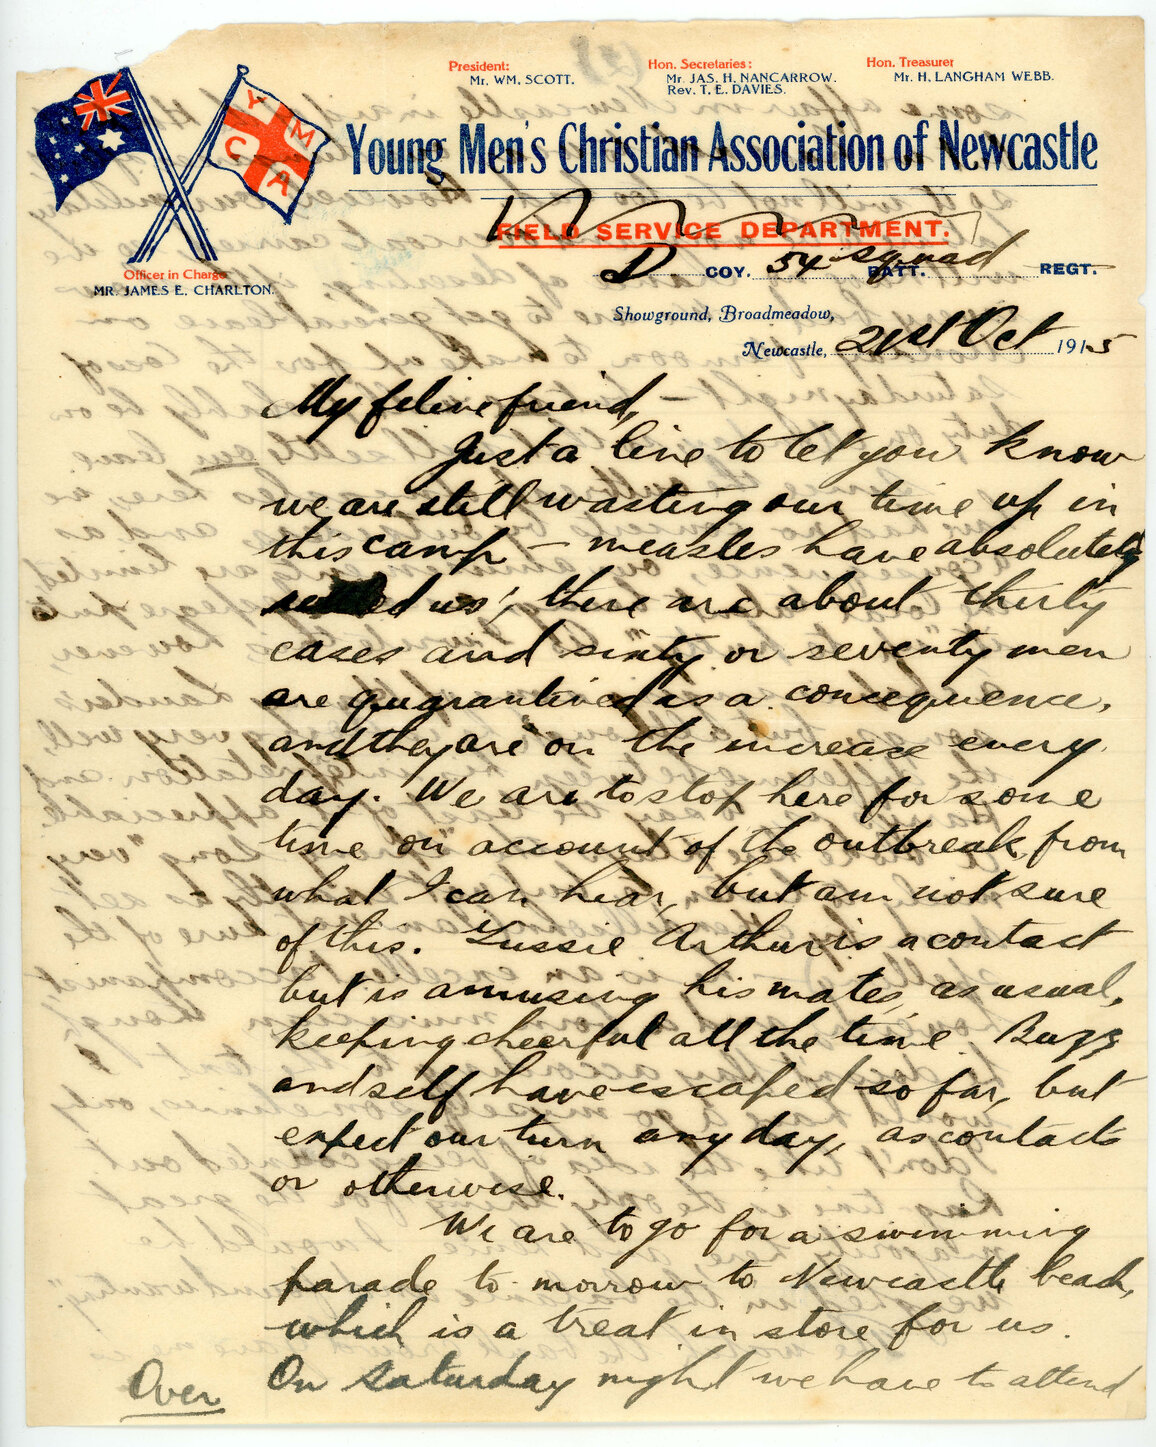 President:
Mr. WM. SCOTT.
Hon. Secretaries:
Mr. JAS. H. NANCARROW.
Rev. T. E. DAVIES.
Hon. Treasurer
Mr. H. LANGHAM WEBB.
Y M C A
Young Men's Christian Association of Newcastle
FIELD SERVICE DEPARTMENT.
D. COY. 54 squad BATT. REGT.
Officer in Charge
MR. JAMES E. CHARLTON.
Showground, Broadmeadow,
Newcastle, 21st Oct 1915
My feline friend,
Just a line to let you know
we are still wasting our time up in
this camp – measles have absolutely
us; there are about thirty
cases and sixty or seventy men
are quarantined as a consequence,
and they are on the increase every
day. We are to stop here for some
time on account of the outbreak, from
what I can hear, but am not sure
of this. Arthur is a contact
but is amusing his mates, as usual,
keeping cheerful all the time. Buzz
and self have escaped so far, but
expect our turn any day, as contacts
or otherwise.
We are to go for a swimming
parade to-morrow to Newcastle beach,
which is a treat in store for us.
On Saturday night we have to attend
Over